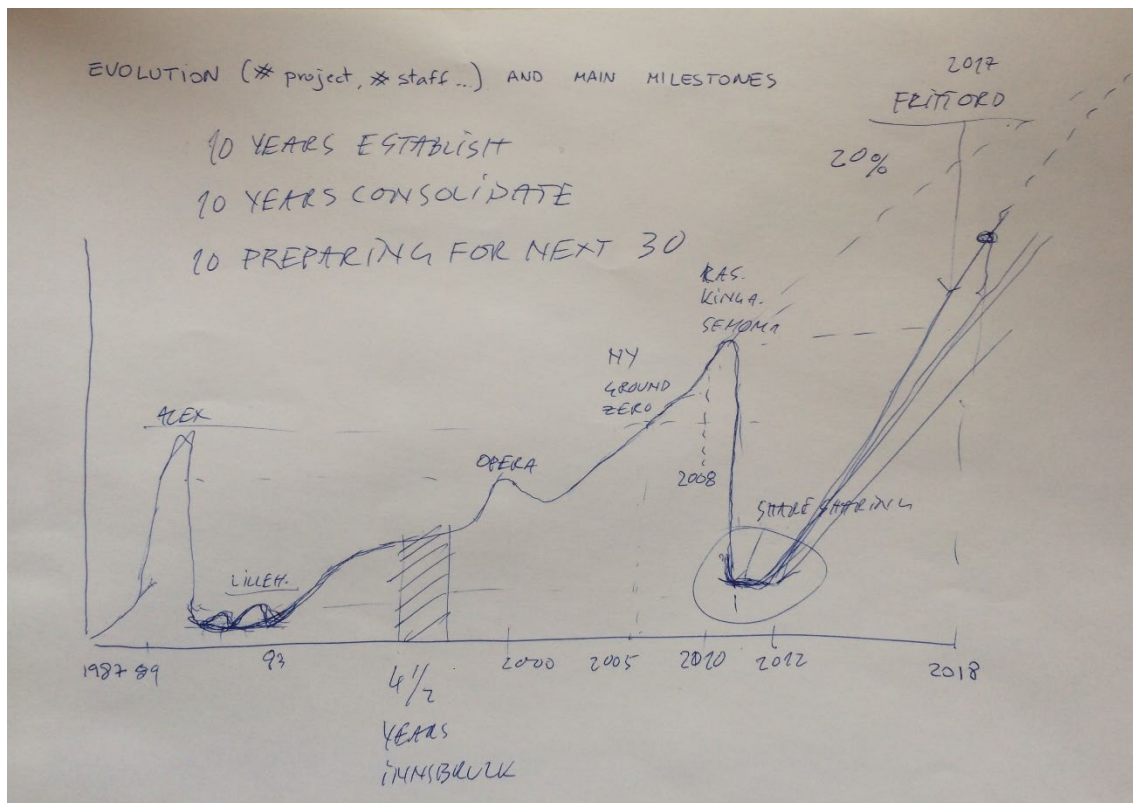 EVOLUTION (# project, # staff...) AND MAIN MILESTONES
10 YEARS ESTABLISH
10 YEARS CONSOLIDATE
10 PREPARING FOR NEXT 30
2017
20%
RAS.
KINGA.
NY
GROUND
ZERO
ALEX
OPERA
2008
SHARE SHARING
LILLEH.
1987 89
93
4 1/2
YEARS
INNSBRUCK
2000
2005
2010
2012
2018